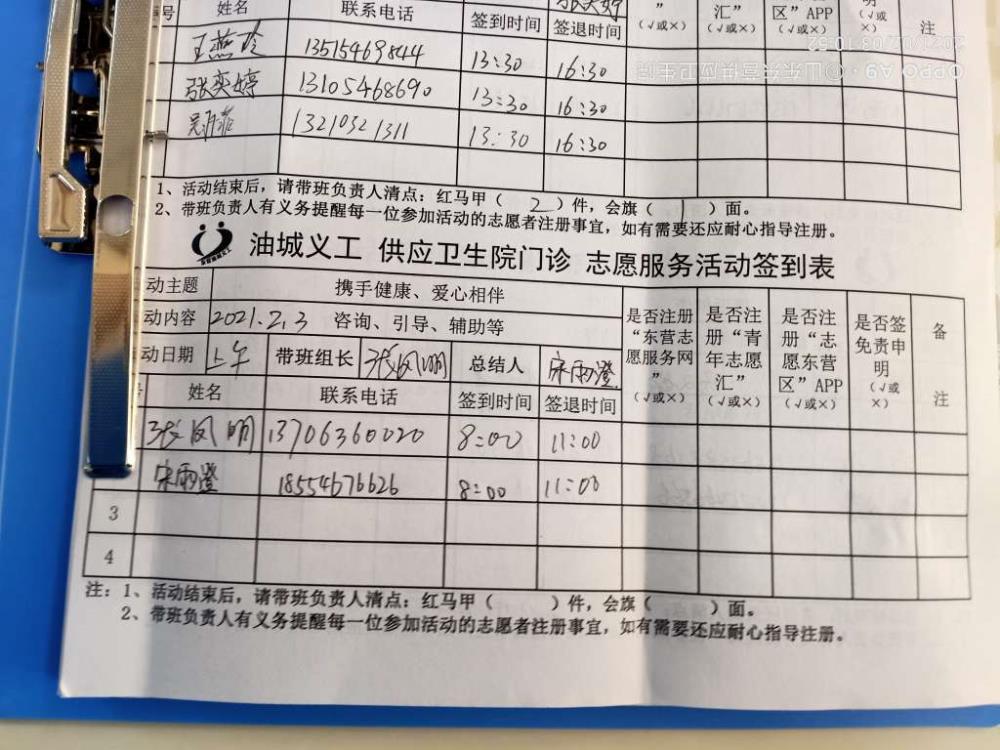 号 姓名 联系电话 签到时间 签退时间 ” 汇” 区”APP 明
张奕婷 (√或×) (√或×) (√或×) (√或 ×) 注
王燕玲 13515469844 13:30 16:30
张奕婷 13105468690 13:30 16:30
13210321311 13:30 16:30
1、活动结束后，请带班负责人清点：红马甲（ 2 ）件，会旗（ 1 ）面。
2、带班负责人有义务提醒每一位参加活动的志愿者注册事宜，如有需要还应耐心指导注册。
油城义工 供应卫生院门诊 志愿服务活动签到表
动主题 携手健康、爱心相伴
动内容 2021.2.3 咨询、引导、辅助等
动日期 上午 带班组长 张凤明 总结人 宋雨澄
是否注册“东营志愿服务网” (√或×)
是否注册“青年志愿汇” (√或×)
是否注册“志愿东营区”APP (√或×)
是否签免责申明 (√或×)
备注
号 姓名 联系电话 签到时间 签退时间
张凤明 13706360020 8:00 11:00
宋雨澄 18554676626 8:00 11:00
3
4
注：1、活动结束后，请带班负责人清点：红马甲（ ）件，会旗（ ）面。
2、带班负责人有义务提醒每一位参加活动的志愿者注册事宜，如有需要还应耐心指导注册。
OPPO A9 · @山东东营供应卫生院
2021/02/08 10:52